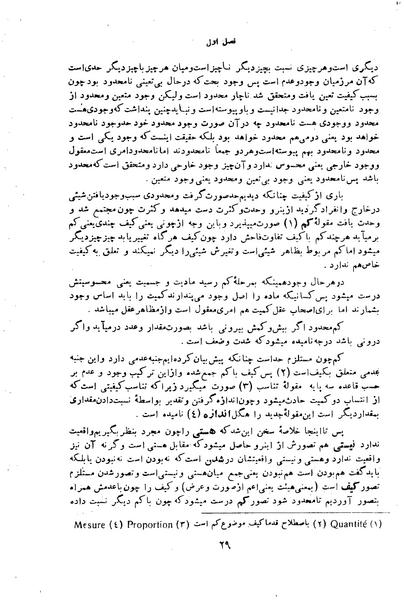 فصل اول
دیگری است وهرچیزی نسبت بچیزدیگر ناچیزاست ومیان هرچیز باچیزدیگر حدی است
که آن مرزمیان وجودوعدم است پس وجود بحت که درحال بی تعینی نامحدود بودچون
بسبب کیفیت تعین یافت ومتحقق شد ناچار محدود است ولیکن وجود متعین ومحدود از
وجود نامتعین ونامحدود جدانیست وباو پیوسته است ونبایدچنین پنداشت که وجودی هست
محدود ووجودی هست نامحدود چه درآن صورت وجود محدود خود حدوجود نامحدود
خواهد بود یعنی دومی هم محدود خواهد بود بلکه حقیقت اینست که وجود یکی است و
محدود ونامحدود بهم پیوسته است وهردو جمعاً نامحدودند امانامحدودامری است معقول
ووجود خارجی یعنی محسوس ندارد وآن چیز وجود خارجی دارد ومتحقق است که محدود
باشد پس نامحدود یعنی وجود بی تعین ومحدود یعنی وجود متعین .
باری از کیفیت چنانکه دیدیم حدصورت گرفت ومحدودی سبب وجودیافتن شیئی
درخارج وانفراد گردید ازینرو وحدت وکثرت دست میدهد وکثرت چون مجتمع شد و
وحدت یافت مقولهٔ کم (۱) صورت میپذیرد وباین وجه ازچونی یعنی کیف چندی یعنی کم
برمیآید هرچندکم باکیف تفاوت فاحش دارد چون کیف هرگاه تغییریابد چیز چیزدیگر
میشود اماکم مربوط بظاهر شیئی است وتغیرش شیئی را دیگر نمیکند و تعلق به کیفیت
خاص هم ندارد .
دوهرحال وجودهمینکه بمرحلهٔ کم رسید مادیت و جسمیت یعنی محسوسیتش
درست میشود پس کسانیکه ماده را اصل وجود می‌پندارندکمیت را باید اساس وجود
بشمارند اما برای اصحاب عقل کمیت هم امری معقول است وازمظاهرعقل میباشد .
کم محدود اگر بیش وکمش بیرونی باشد بصورت مقدار وعدد درمیآید واگر
درونی باشد درجه نامیده میشودکه شدت وضعف است .
کم چون مستلزم حداست چنانکه پیش بیان کرده‌ایم جنبه عدمی دارد واین جنبه
عدمی متعلق بکیف است (۲) پس کیف باکم جمع شده وازاین ترکیب وجود و عدم بر
حسب قاعده سه پایه مقولهٔ تناسب (۳) صورت میگیرد زیرا که تناسب کیفیتی است که
از انتساب دو کمیت حادث میشود وچون اندازه گرفتن وتقدیر بواسطهٔ نسبت دادن مقداری
بمقدار دیگر است این مقولهٔ جدید را هگل اندازه (٤) نامیده است .
پس تااینجا خلاصهٔ سخن این شد که هستی راچون مجرد بنظر بگیریم واقعیت
ندارد نیستی هم تصورش از اینرو حاصل میشودکه مقابل هستی است وگرنه آن نیز
واقعیت ندارد وهستی ونیستی واقعیتشان درشدن است که نه بودن است نه نبودن یا بلکه
باید گفت هم بودن است هم نبودن یعنی جمع میان هستی ونیستی است وتصورشدن مستلزم
تصور کیف است (بمعنی هیئت یعنی اعم ازصورت وعرض) و کیف را چون باعدمش همراه
بتصور آوردیم نامحدود شود تصور کم درست میشود که چون باکم دیگر نسبت داده
(۱) Quantité (۲) باصطلاح قدماکیف موضوع کم است (۳) Proportion (٤) Mesure
۲۹